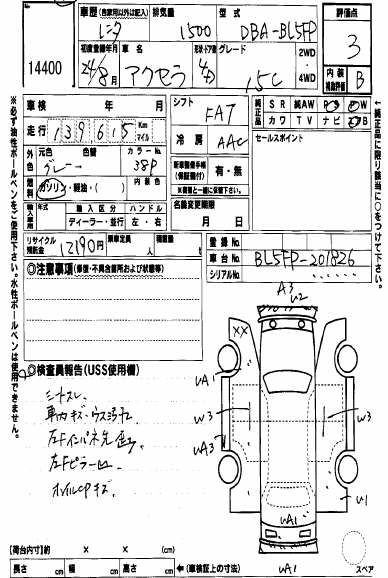 14400
車歴(自家用以外は記入) レンタ
排気量 1500
型式 DBA-BL5FP
初度登録年月 24年8月
車名 アクセラ
形状・ドア数 4D
グレード 15C
2WD
4WD
評価点 3
内装補助評価 B
車検 年 月
走行 139615 Km マイル
シフト FAT
冷房 AAC
純正品 SR 純AW PS PW
カワ TV ナビ エアB
セールスポイント
外色 元色 グレー
色替
カラーNo. 38P
内装色
燃料 ガソリン・軽油・( )
新車整備手帳(保証書付) 有・無
※書類と一緒に保管下さい。
輸入車用 輸入区分 ディーラー・並行
ハンドル 左・右
名義変更期限 月 日
リサイクル預託金 12190円
乗車定員 人
積載量
登録No.
車台No. BL5FP-201826
シリアルNo.
◎注意事項(修復・不具合箇所および状態等)
※必ず油性ボールペンをご使用下さい。水性ボールペンは使用できません。
※純正品に限り該当に○をつけて下さい。
◎検査員報告(USS使用欄)
シートスレ
車内キズ・ウスヨゴレ
左Fインパネ
左Fピラー凹
オイルCPキズ
A3
W2
XX
UA1
W3
W3
UA3
U1
UA1
UA1
スペア
【荷台内寸】約 × × (cm)
長さ cm 幅 cm 高さ cm
←(車検証上の寸法)